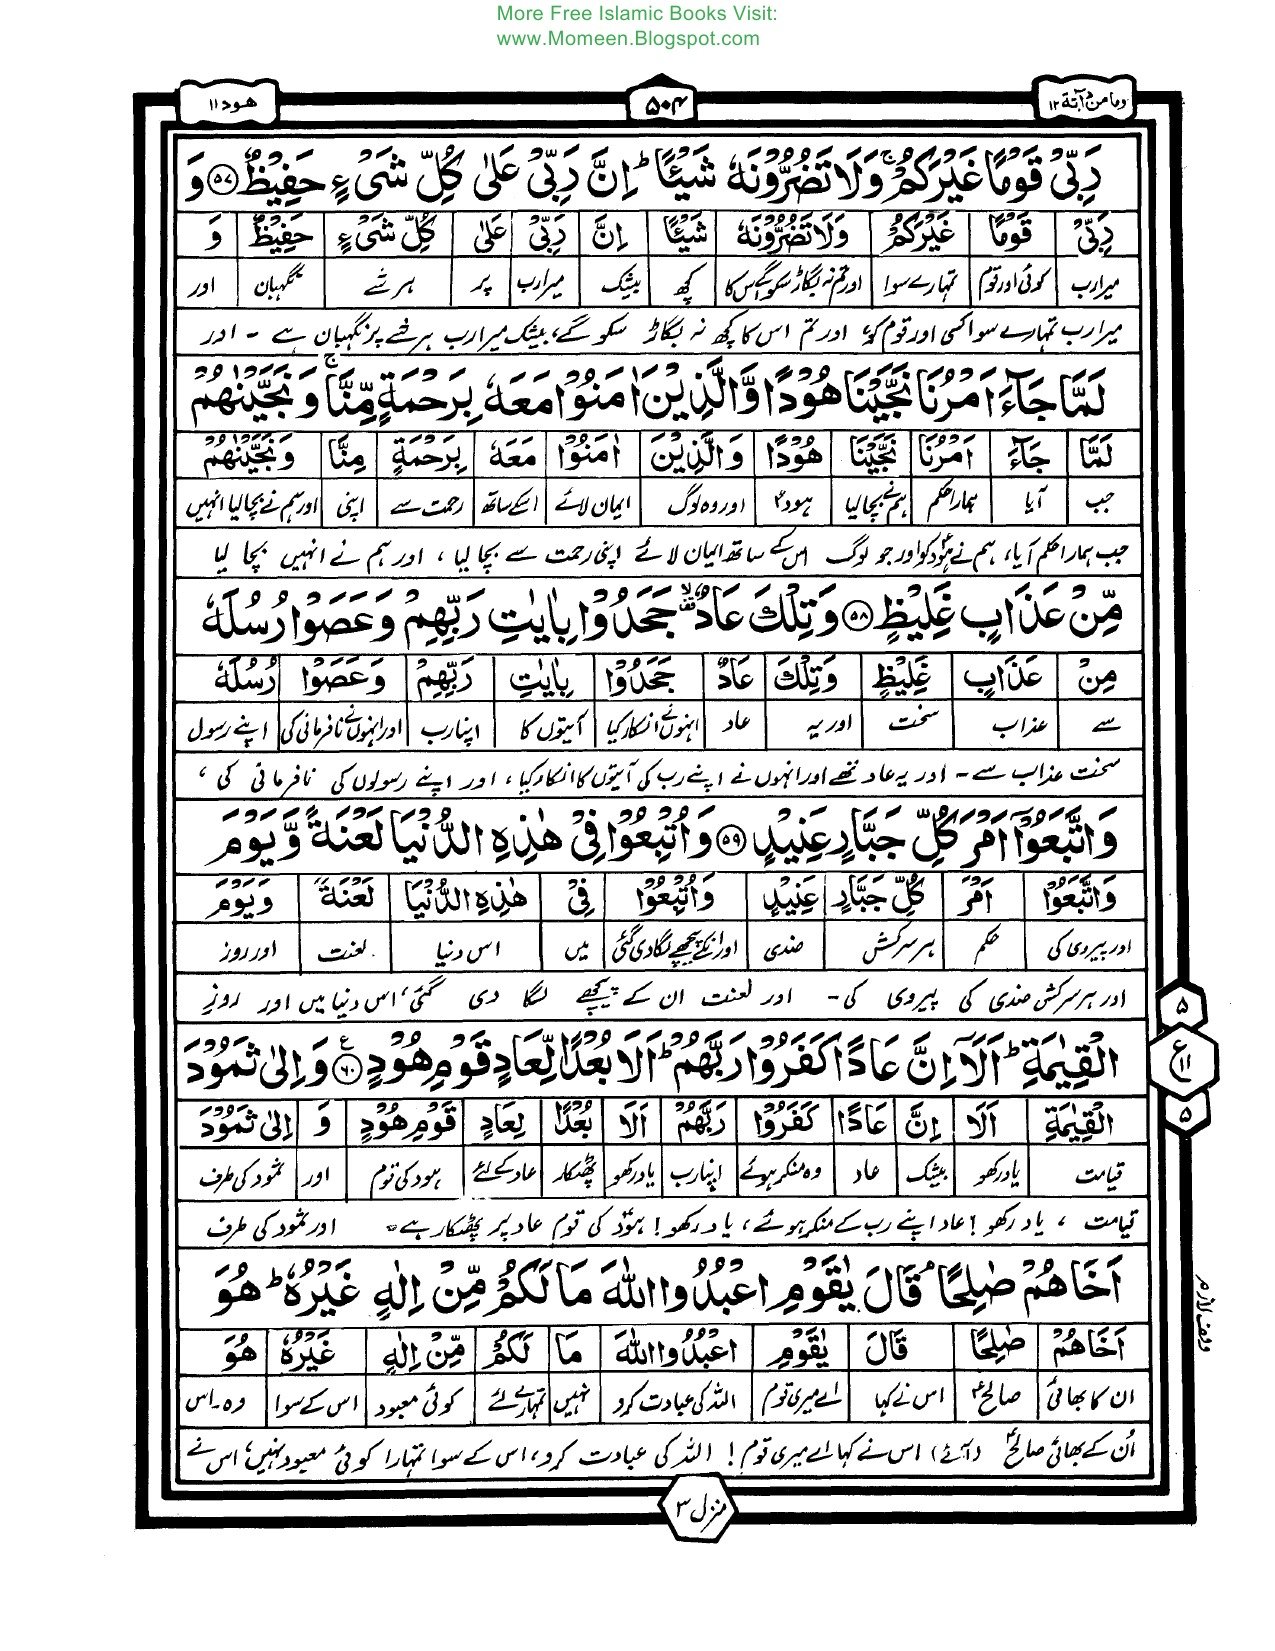 More Free Islamic Books Visit:
www.Momeen.Blogspot.com
وما من دآبۃ ۱۲
۵۰۴
ھود ۱۱
رَبِّیْ قَوْمًا غَیْرَكُمْ ۚ وَلَا تَضُرُّوْنَهٗ شَیْـًٔا ؕ اِنَّ رَبِّیْ عَلٰی كُلِّ شَیْءٍ حَفِیْظٌ ﴿۵۷﴾ وَ
رَبِّیْ | قَوْمًا | غَیْرَكُمْ | وَلَا تَضُرُّوْنَهٗ | شَیْـًٔا | اِنَّ | رَبِّیْ | عَلٰی | كُلِّ شَیْءٍ | حَفِیْظٌ | وَ
میرا رب | کوئی اور قوم | تمہارے سوا | اور تم نہ بگاڑ سکو گے اس کا | کچھ | بیشک | میرا رب | پر | ہر شے | نگہبان | اور
میرا رب تمہارے سوا کسی اور قوم کو اور تم اس کا کچھ نہ بگاڑ سکو گے، بیشک میرا رب ہر شے پر نگہبان ہے - اور
لَمَّا جَآءَ اَمْرُنَا نَجَّیْنَا هُوْدًا وَّالَّذِیْنَ اٰمَنُوْا مَعَهٗ بِرَحْمَةٍ مِّنَّا ۚ وَنَجَّیْنٰهُمْ
لَمَّا | جَآءَ | اَمْرُنَا | نَجَّیْنَا | هُوْدًا | وَالَّذِیْنَ | اٰمَنُوْا | مَعَهٗ | بِرَحْمَةٍ | مِنَّا | وَنَجَّیْنٰهُمْ
جب | آیا | ہمارا حکم | ہم نے بچا لیا | ہودؑ | اور وہ لوگ | ایمان لائے | اسکے ساتھ | رحمت سے | اپنی | اور ہم نے بچا لیا انہیں
جب ہمارا حکم آیا، ہم نے ہودؑ کو اور جو لوگ اس کے ساتھ ایمان لائے اپنی رحمت سے بچا لیا، اور ہم نے انہیں بچا لیا
مِّنْ عَذَابٍ غَلِیْظٍ ﴿۵۸﴾ وَتِلْكَ عَادٌ جَحَدُوْا بِاٰیٰتِ رَبِّهِمْ وَعَصَوْا رُسُلَهٗ
مِنْ | عَذَابٍ | غَلِیْظٍ | وَتِلْكَ | عَادٌ | جَحَدُوْا | بِاٰیٰتِ | رَبِّهِمْ | وَعَصَوْا | رُسُلَهٗ
سے | عذاب | سخت | اور یہ | عاد | انہوں نے انکار کیا | آیتوں کا | اپنا رب | اور انہوں نے نافرمانی کی | اپنے رسول
سخت عذاب سے - اور یہ عاد تھے اور انہوں نے اپنے رب کی آیتوں کا انکار کیا، اور اپنے رسولوں کی نافرمانی کی،
وَاتَّبَعُوْۤا اَمْرَ كُلِّ جَبَّارٍ عَنِیْدٍ ﴿۵۹﴾ وَاُتْبِعُوْا فِیْ هٰذِهِ الدُّنْیَا لَعْنَةً وَّیَوْمَ
وَاتَّبَعُوْا | اَمْرَ | كُلِّ جَبَّارٍ | عَنِیْدٍ | وَاُتْبِعُوْا | فِیْ | هٰذِهِ الدُّنْیَا | لَعْنَةً | وَیَوْمَ
اور پیروی کی | حکم | ہر سرکش | ضدی | اور انکے پیچھے لگا دی گئی | میں | اس دنیا | لعنت | اور روز
اور ہر سرکش ضدی کی پیروی کی - اور لعنت ان کے پیچھے لگا دی گئی، اس دنیا میں اور روزِ
الْقِیٰمَةِ ؕ اَلَاۤ اِنَّ عَادًا كَفَرُوْا رَبَّهُمْ ؕ اَلَا بُعْدًا لِّعَادٍ قَوْمِ هُوْدٍ ﴿۶۰﴾ وَاِلٰی ثَمُوْدَ
الْقِیٰمَةِ | اَلَا | اِنَّ | عَادًا | كَفَرُوْا | رَبَّهُمْ | اَلَا | بُعْدًا | لِعَادٍ | قَوْمِ هُوْدٍ | وَ | اِلٰی ثَمُوْدَ
قیامت | یاد رکھو | بیشک | عاد | وہ منکر ہوئے | اپنا رب | یاد رکھو | پھٹکار | عاد کے لئے | ہود کی قوم | اور | ثمود کی طرف
قیامت، یاد رکھو! عاد اپنے رب کے منکر ہوئے، یاد رکھو! ہودؑ کی قوم عاد پر پھٹکار ہے۔ اور ثمود کی طرف
اَخَاهُمْ صٰلِحًا ۘ قَالَ یٰقَوْمِ اعْبُدُوا اللّٰهَ مَا لَكُمْ مِّنْ اِلٰهٍ غَیْرُهٗ ؕ هُوَ
اَخَاهُمْ | صٰلِحًا | قَالَ | یٰقَوْمِ | اعْبُدُوا اللّٰهَ | مَا | لَكُمْ | مِّنْ اِلٰهٍ | غَیْرُهٗ | هُوَ
ان کا بھائی | صالحؑ | اس نے کہا | اے میری قوم | اللہ کی عبادت کرو | نہیں | تمہارے لئے | کوئی معبود | اس کے سوا | وہ۔اس
اُن کے بھائی صالحؑ (آئے) اس نے کہا اے میری قوم! اللہ کی عبادت کرو، اس کے سوا تمہارا کوئی معبود نہیں، اس نے
۵
ع
۱۱
۵
وقف لازم
منزل ۳